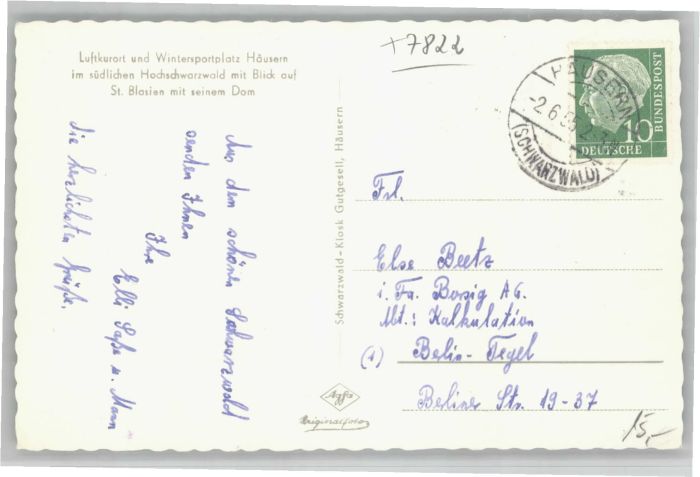 Luftkurort und Wintersportplatz Häusern
im südlichen Hochschwarzwald mit Blick auf
St. Blasien mit seinem Dom
+7822
HÄUSERN
-2.6.55
(SCHWARZWALD)
10
BUNDESPOST
DEUTSCHE
Aus dem schönen Schwarzwald
senden Ihnen
die herzlichsten Grüße.
Ihre
Elli Saße u. Mann
Schwarzwald-Kiosk Gutgesell, Häusern
Frl.
Else Beetz
i. Fa. Borsig AG.
Abt.: Kalkulation
(1) Berlin-Tegel
Berliner Str. 19-37
Agfa
Originalfoto
15,-